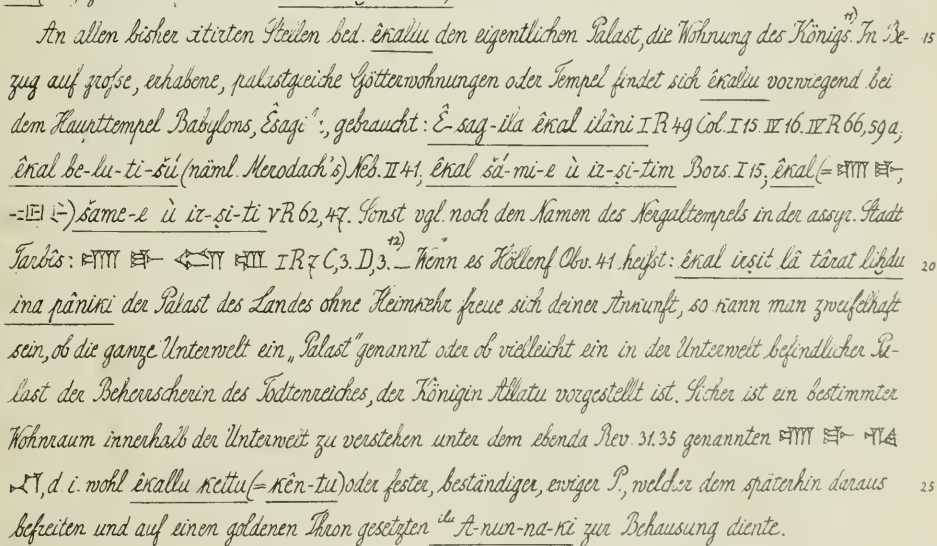 An allen bisher citirten Stellen bed. êkallu den eigentlichen Palast, die Wohnung des Königs.¹¹⁾ In Be- 15
zug auf grosse, erhabene, palastgleiche Götterwohnungen oder Tempel findet sich êkallu vorwiegend bei
dem Haupttempel Babylons, Êsagi, gebraucht: Ê-sag-ila êkal ilâni I R 49 Col. I 15. IV 16. IV R 66, 59 a,
êkal be-lu-ti-šú (näml. Merodach's) Neb. II 41, êkal šá-mi-e ù ir-ṣi-tim Bors. I 15, êkal (= 𒂍𒃲) šame-e ù ir-ṣi-ti V R 62, 47. Sonst vgl. noch den Namen des Nergaltempels in der assyr. Stadt
Tarbîs: I R 7 C, 3. D, 3.¹²⁾ – Wenn es Höllenf. Obv. 41 heisst: êkal irṣit lâ târat liḫdu 20
ina pâniki der Palast des Landes ohne Heimkehr freue sich deiner Ankunft, so kann man zweifelhaft
sein, ob die ganze Unterwelt ein „Palast" genannt oder ob vielleicht ein in der Unterwelt befindlicher Pa-
last der Beherrscherin des Todtenreiches, der Königin Allatu vorgestellt ist. Sicher ist ein bestimmter
Wohnraum innerhalb der Unterwelt zu verstehen unter dem ebenda Rev. 31. 35 genannten
d. i. wohl êkallu kettu (= kên-tu) oder fester, beständiger, ewiger P., welcher dem späterhin daraus 25
befreiten und auf einen goldenen Thron gesetzten ilu A-nun-na-ki zur Behausung diente.